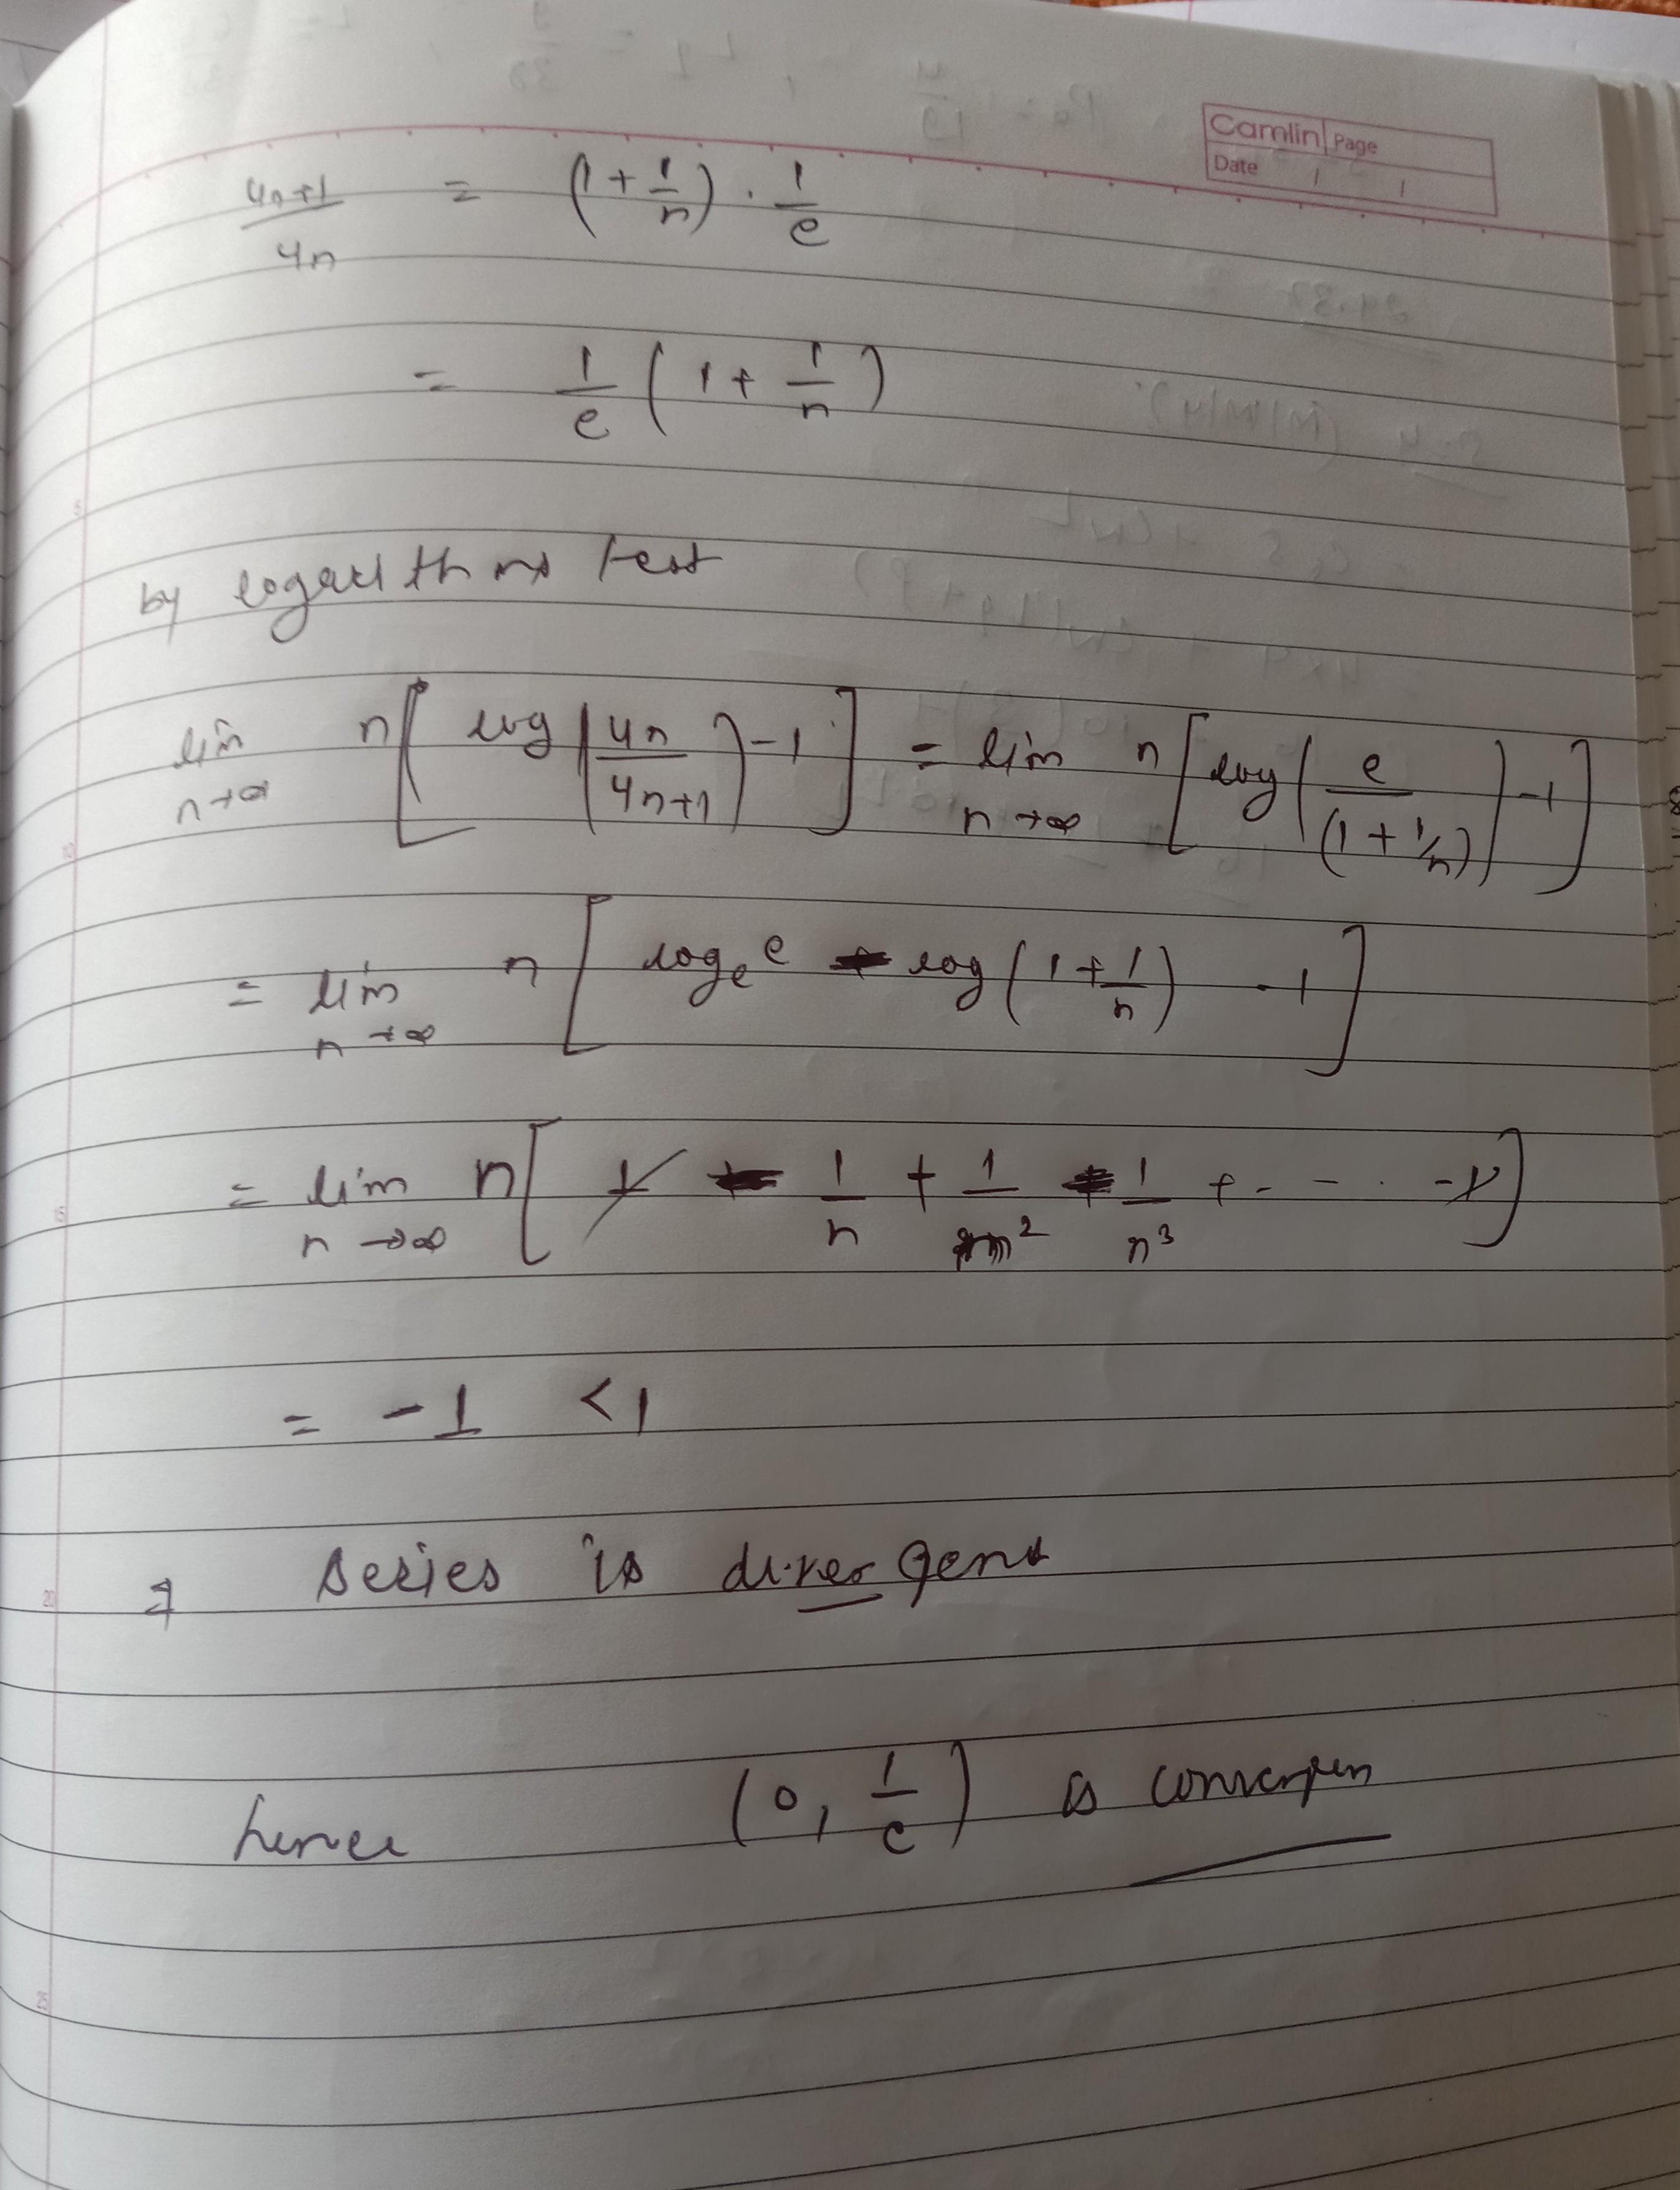 Camlin Page
Date / /
4n+1/4n = (1 + 1/n) · 1/e
= 1/e (1 + 1/n)
by logarithms test
lim n→∞ n[log(4n/4n+1) -1] = lim n→∞ n[log(e/(1 + 1/n)) -1]
= lim n→∞ n[logₑ e - log(1 + 1/n) -1]
= lim n→∞ n[1 - 1/n + 1/n² - 1/n³ + - - - -1]
= -1 <1
⇒ series is divergent
hence (0, 1/e) is convergen